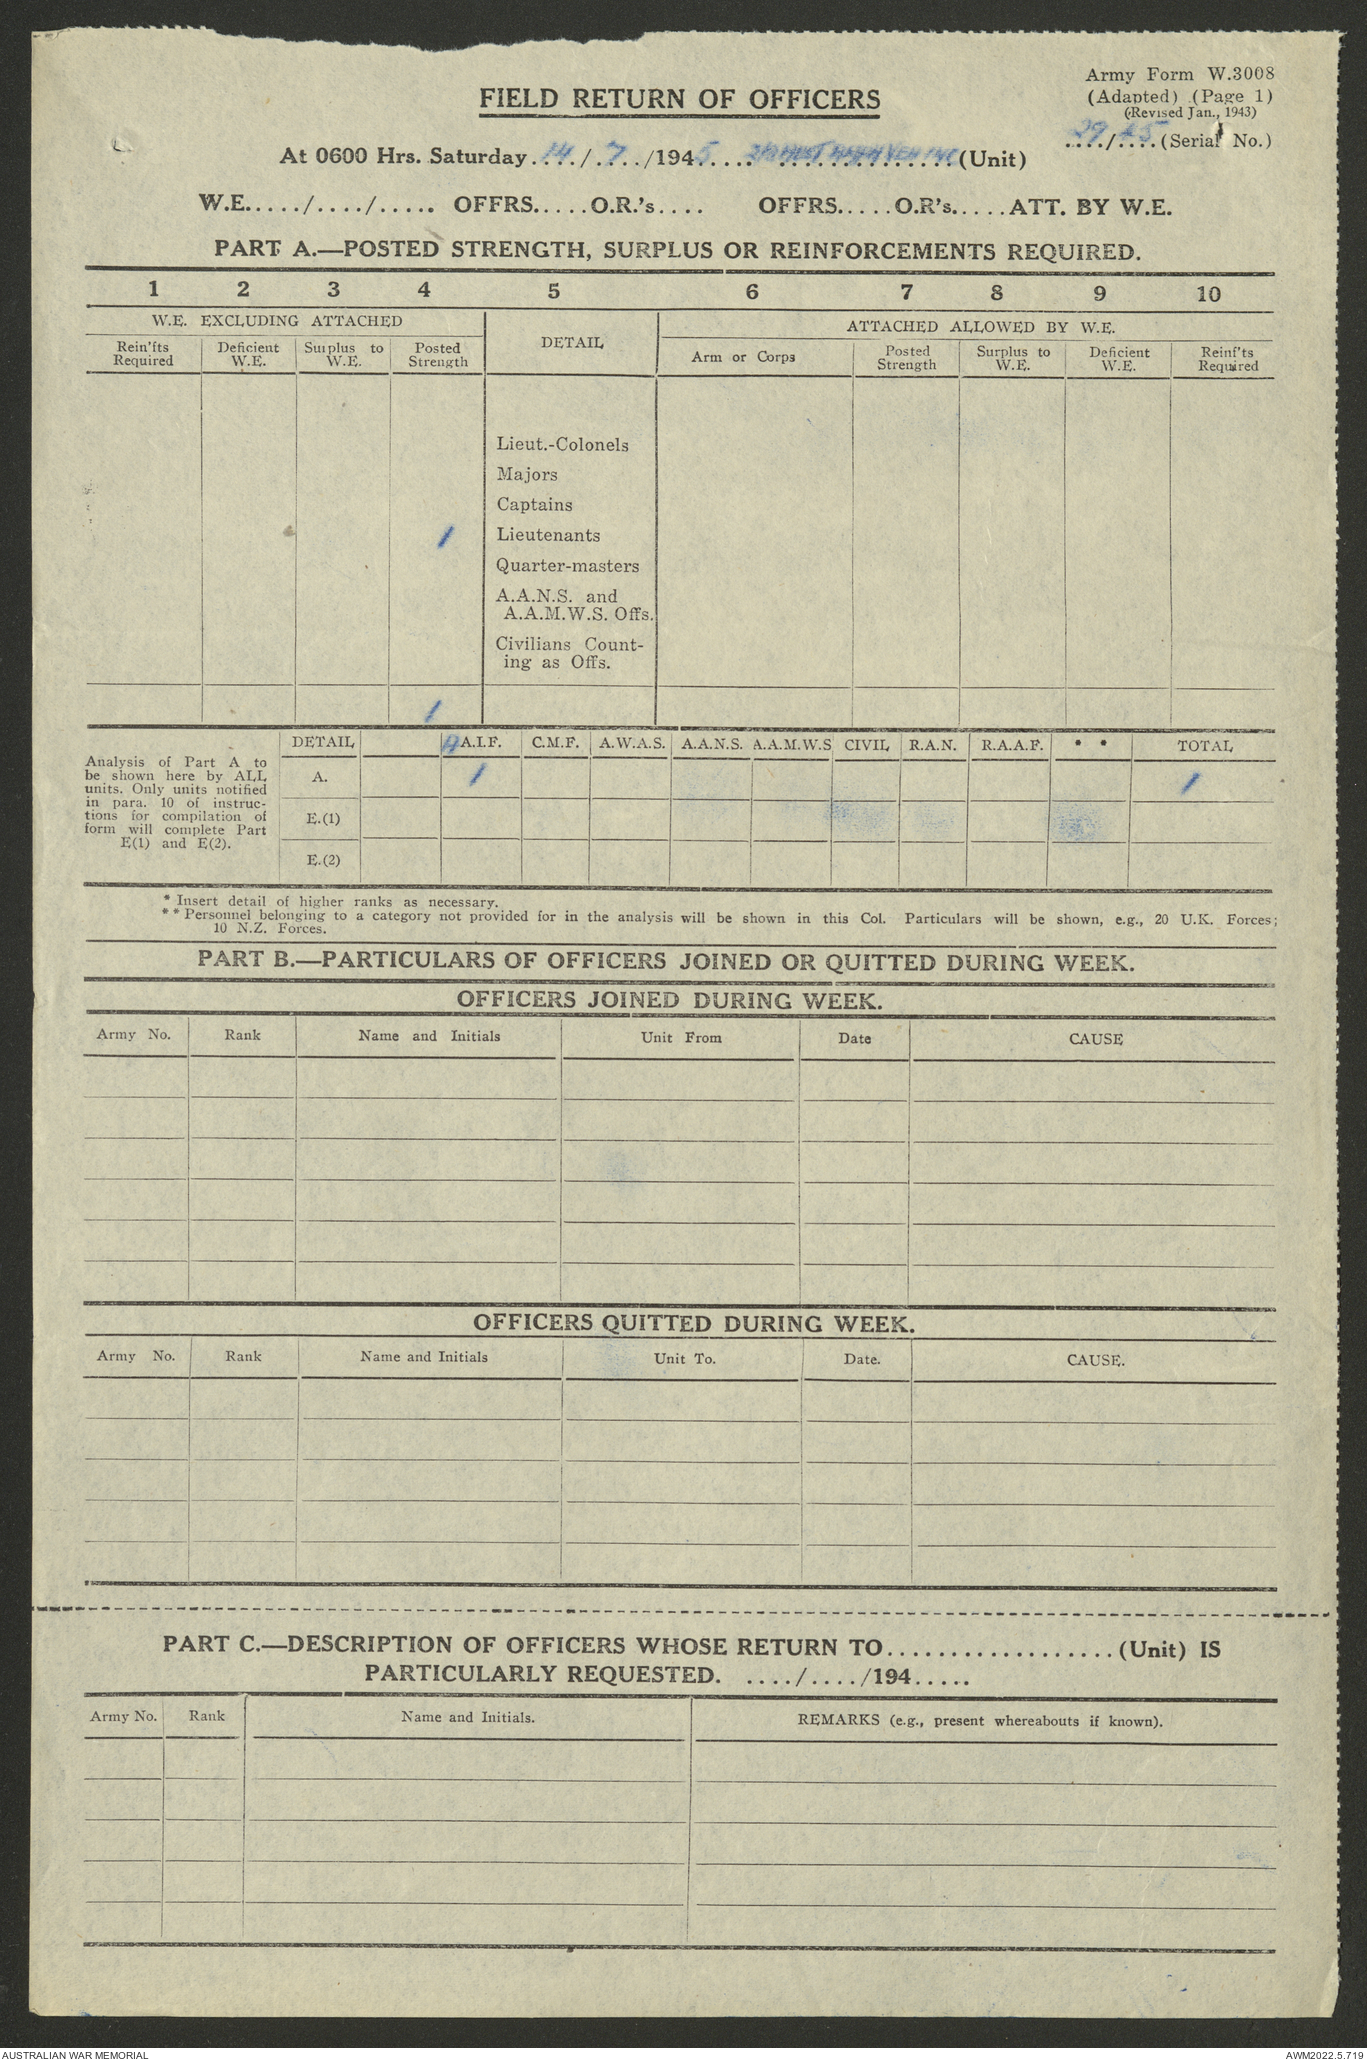 Army Form W.3008
(Adapted) (Page 1)
(Revised Jan., 1943)
29/45 (Serial No.)
FIELD RETURN OF OFFICERS
At 0600 Hrs. Saturday 14/7/1945 (Unit)
W.E...../..../..... OFFRS.....O.R.'s.... OFFRS.....O.R's.....ATT. BY W.E.
PART A.—POSTED STRENGTH, SURPLUS OR REINFORCEMENTS REQUIRED.
1 2 3 4 5 6 7 8 9 10
W.E. EXCLUDING ATTACHED
DETAIL
ATTACHED ALLOWED BY W.E.
Rein'fts Required
Deficient W.E.
Surplus to W.E.
Posted Strength
Arm or Corps
Posted Strength
Surplus to W.E.
Deficient W.E.
Reinf'ts Required
Lieut.-Colonels
Majors
Captains
1 Lieutenants
Quarter-masters
A.A.N.S. and
A.A.M.W.S. Offs.
Civilians Count-
ing as Offs.
1
Analysis of Part A to
be shown here by ALL
units. Only units notified
in para. 10 of instruc-
tions for compilation of
form will complete Part
E(1) and E(2).
DETAIL A.I.F. C.M.F. A.W.A.S. A.A.N.S. A.A.M.W.S CIVIL R.A.N. R.A.A.F. * * TOTAL
A. 1 1
E.(1)
E.(2)
* Insert detail of higher ranks as necessary.
** Personnel belonging to a category not provided for in the analysis will be shown in this Col. Particulars will be shown, e.g., 20 U.K. Forces;
10 N.Z. Forces.
PART B.—PARTICULARS OF OFFICERS JOINED OR QUITTED DURING WEEK.
OFFICERS JOINED DURING WEEK.
Army No. Rank Name and Initials Unit From Date CAUSE
OFFICERS QUITTED DURING WEEK.
Army No. Rank Name and Initials Unit To. Date. CAUSE.
PART C.—DESCRIPTION OF OFFICERS WHOSE RETURN TO..................(Unit) IS
PARTICULARLY REQUESTED. ..../..../194.....
Army No. Rank Name and Initials. REMARKS (e.g., present whereabouts if known).
AUSTRALIAN WAR MEMORIAL
AWM2022.5.719